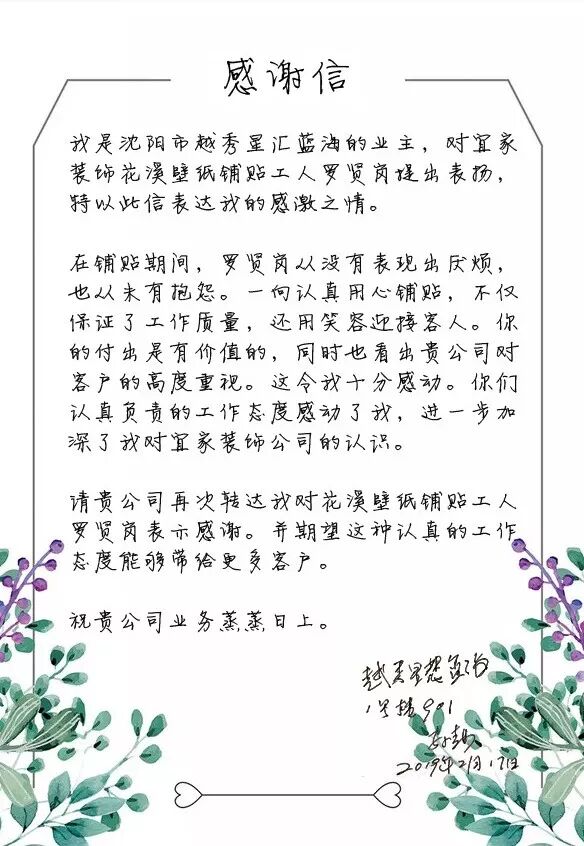 感谢信
我是沈阳市越秀星汇蓝海的业主，对宜家
装饰花漾壁纸铺贴工人罗贤岗提出表扬，
特以此信表达我的感激之情。
在铺贴期间，罗贤岗从没有表现出厌烦，
也从未有抱怨。一向认真用心铺贴，不仅
保证了工作质量，还用笑容迎接客人。你
的付出是有价值的，同时也看出贵公司对
客户的高度重视。这令我十分感动。你们
认真负责的工作态度感动了我，进一步加
深了我对宜家装饰公司的认识。
请贵公司再次转达我对花漾壁纸铺贴工人
罗贤岗表示感谢。并期望这种认真的工作
态度能够带给更多客户。
祝贵公司业务蒸蒸日上。
越秀星汇蓝海
1号楼901
2019年2月17日